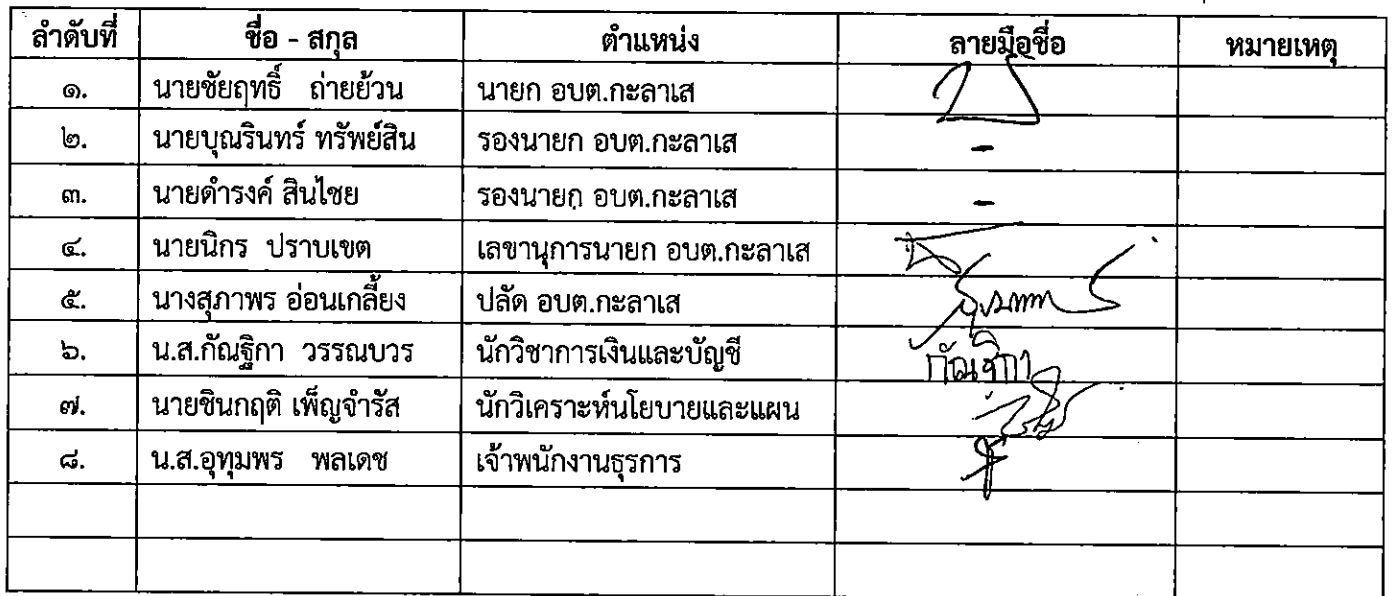 ลำดับที่ ชื่อ - สกุล ตำแหน่ง ลายมือชื่อ หมายเหตุ
๑. นายชัยฤทธิ์ ถ่ายย้วน นายก อบต.กะลาเส
๒. นายบุณรินทร์ ทรัพย์สิน รองนายก อบต.กะลาเส -
๓. นายดำรงค์ สินไชย รองนายก อบต.กะลาเส -
๔. นายนิกร ปราบเขต เลขานุการนายก อบต.กะลาเส
๕. นางสุภาพร อ่อนเกลี้ยง ปลัด อบต.กะลาเส
๖. น.ส.กัณฐิกา วรรณบวร นักวิชาการเงินและบัญชี กัณฐิกา
๗. นายชินกฤติ เพ็ญจำรัส นักวิเคราะห์นโยบายและแผน
๘. น.ส.อุทุมพร พลเดช เจ้าพนักงานธุรการ